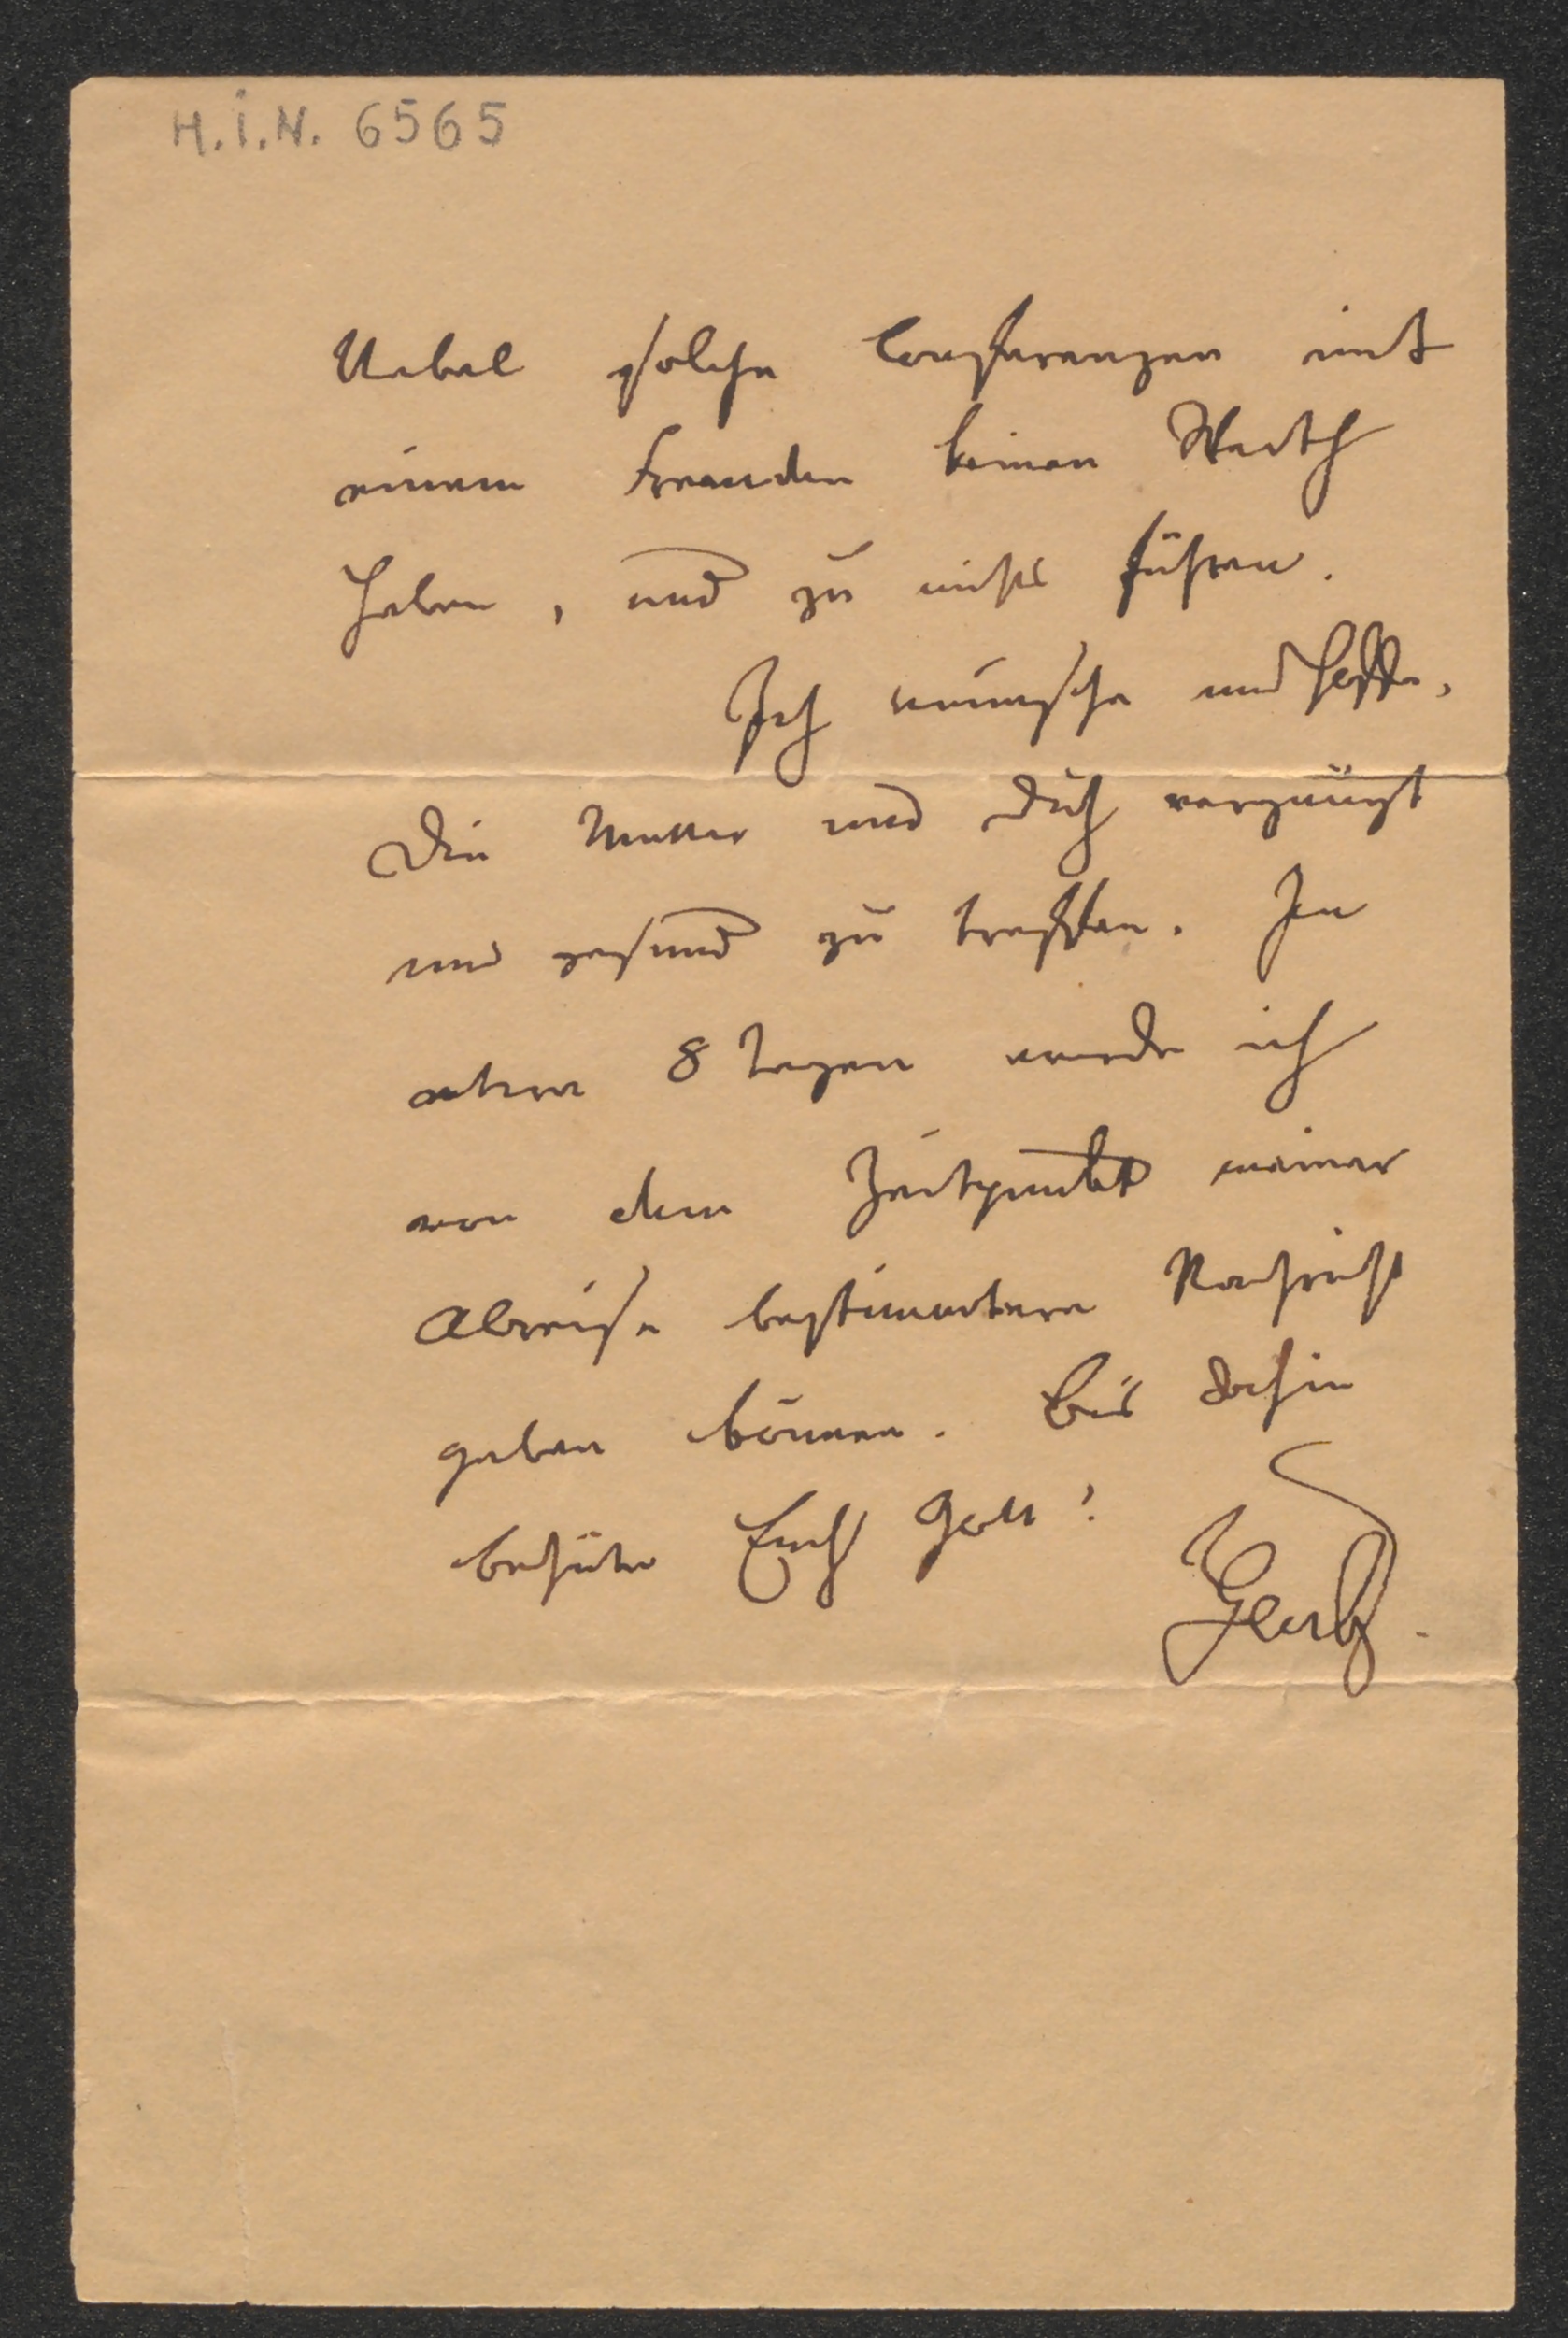 H.I.N. 6565
Uebel solche Conferenzen mit
einem Fremden keinen Werth
haben, und zu nichts führen.
Ich wünsche und hoffe,
Die Mutter und Dich vergnügt
und gesund zu treffen. In
etwa 8 Tagen werde ich
von dem Zeitpunkt meiner
Abreise bestimmtere Nachricht
geben können. Bis dahin
behüte Euch Gott!